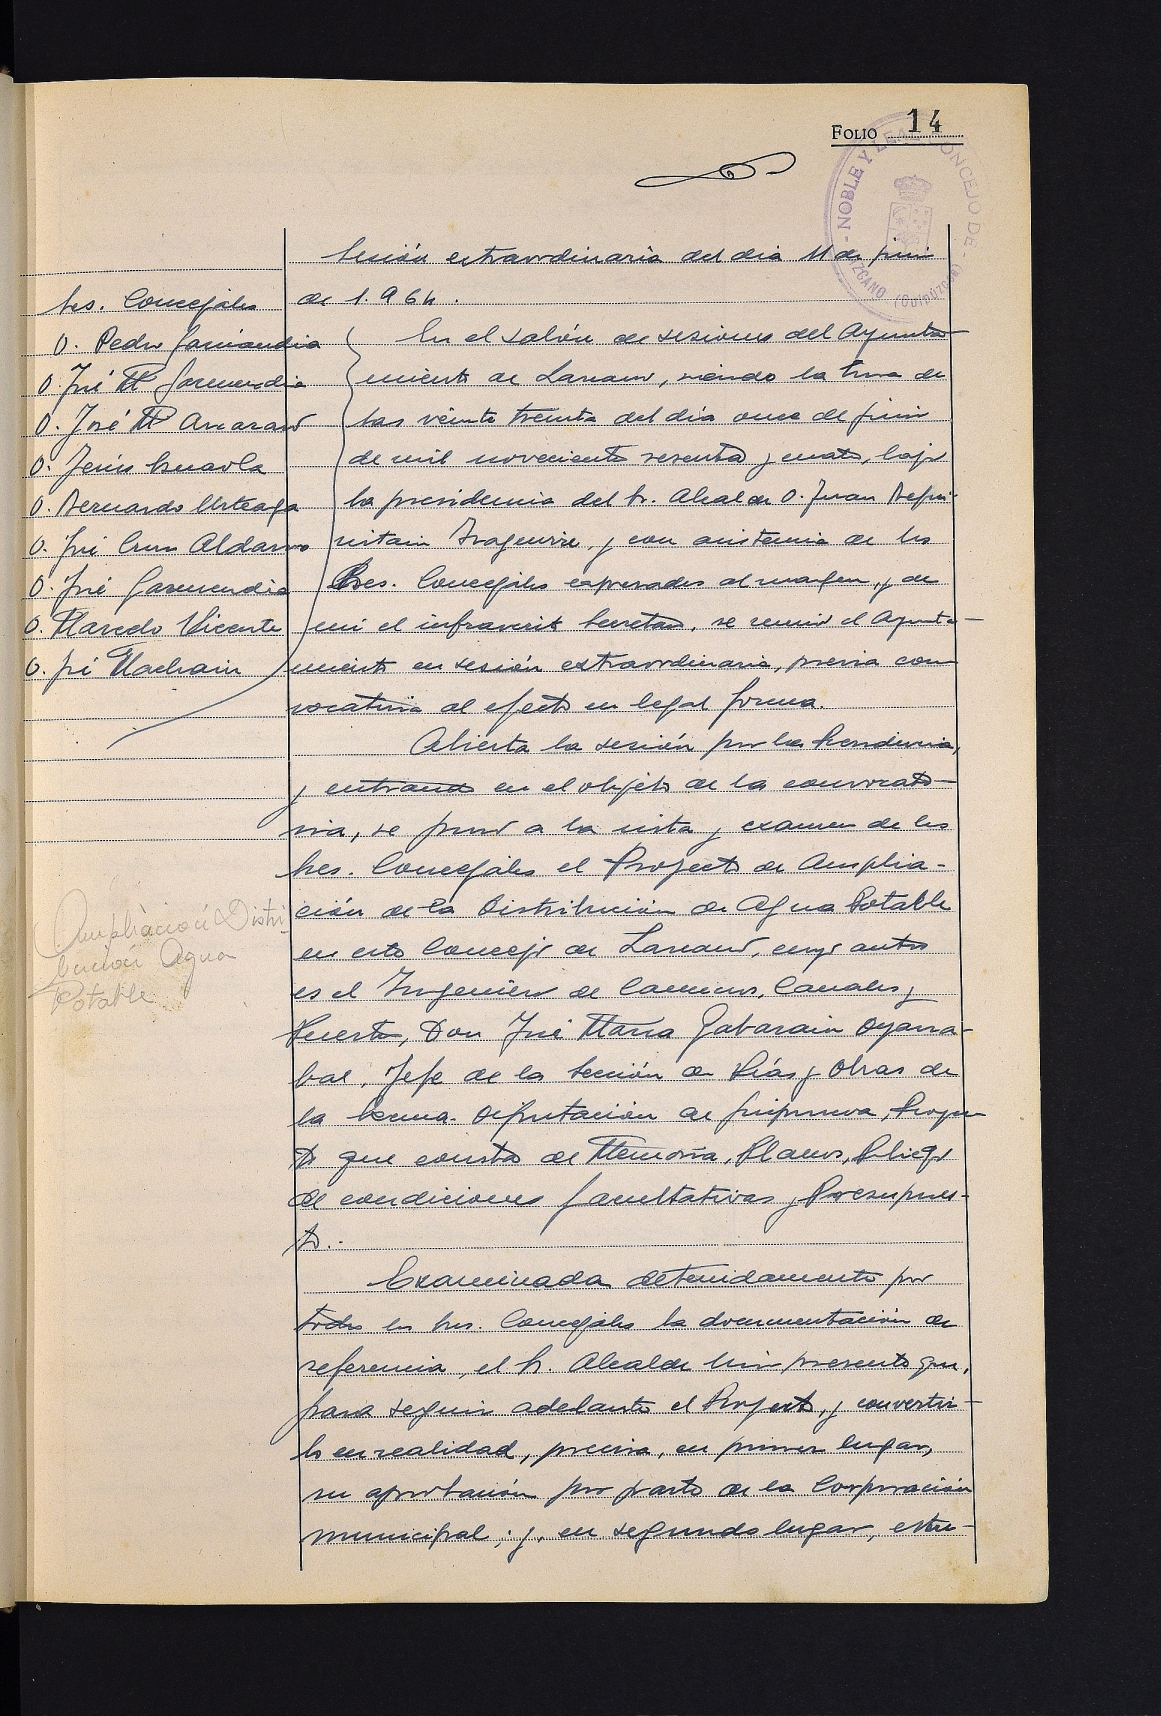 FOLIO 14
NOBLE Y LEAL CONCEJO DE LAZCANO (Guipúzcoa)
Sesión extraordinaria del dia 11 de junio
de 1.964.
Sres. Concejales
D. Pedro Garciandia
D. José Mª Garmendia
D. José Mª
D. Jesús
D. Bernardo Urteaga
D. José Cruz Aldasoro
D. José Garmendia
D. Marcelo Vicente
D. José Machain
En el salón de sesiones del Ayunta-
miento de Lazcano, siendo la hora de
las veinte treinta del día once de junio
de mil novecientos sesenta y cuatro, bajo
la presidencia del Sr. Alcalde D. Juan Begui-
ristain Izaguirre, y con asistencia de los
Sres. Concejales expresados al margen, y de
mi el infrascrito Secretario, se reunió el Ayunta-
miento en sesión extraordinaria, previa con
vocatoria al efecto en legal forma.
Abierta la sesión por la Presidencia,
y entrando en el objeto de la convocato-
ria, se puso a la vista y examen de los
Sres. Concejales el Proyecto de Amplia-
ción de la Distribución de Agua Potable
en este Concejo de Lazcano, cuyo autor
es el Ingeniero de Caminos, Canales y
Puertos, Don José María Gabarain Oyarza-
bal, Jefe de la Sección de Vías y Obras de
la Excma. Diputación de Guipúzcoa, Proyec-
to que consta de Memoria, Planos, Pliego
de condiciones facultativas y Presupues-
to.-
Ampliación Distri-
bución Agua
Potable
Examinada detenidamente por
todos los Sres. Concejales la documentación de
referencia, el Sr. Alcalde hizo presente que,
para seguir adelante el Proyecto, y convertir-
lo en realidad, precisa, en primer lugar,
su aprobación por parte de la Corporación
municipal; y, en segundo lugar, estu-